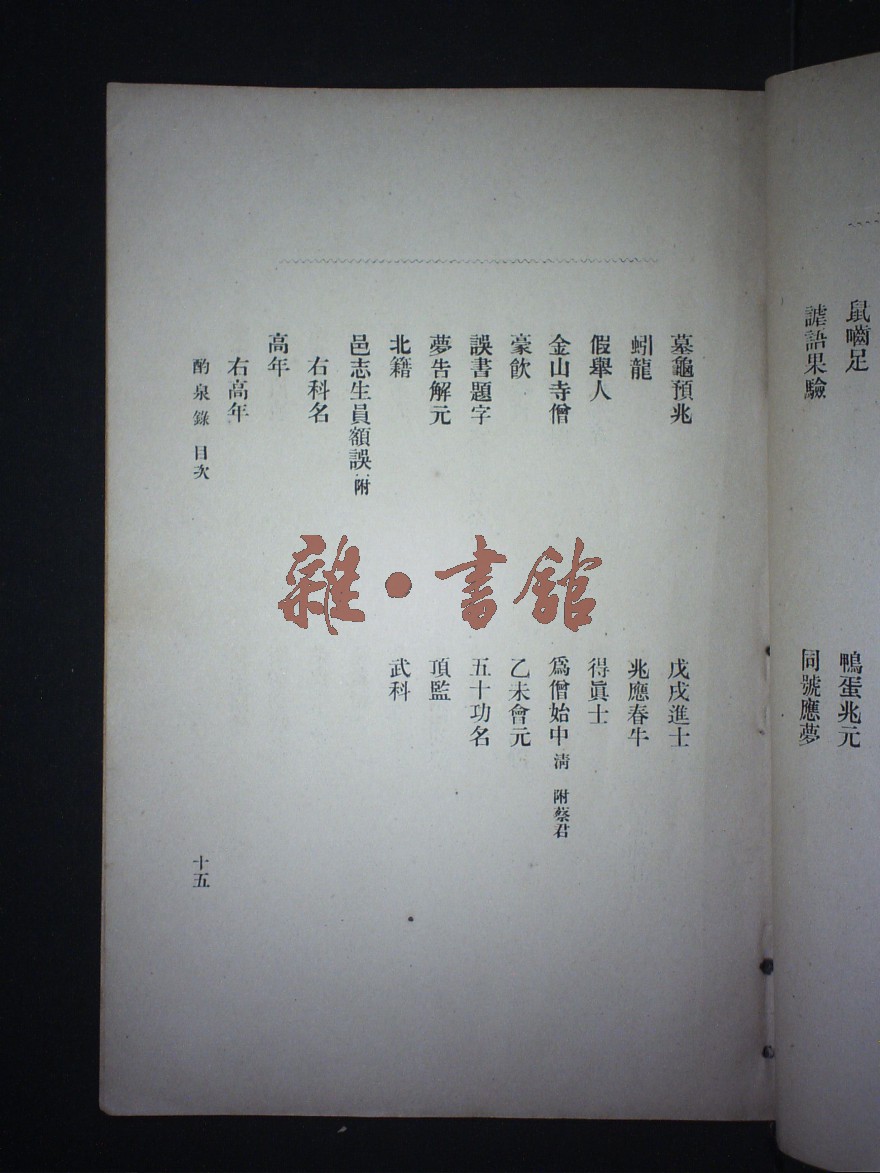 鼠嚙足
鴨蛋兆元
謔語果驗
同號應夢
墓龜預兆
戊戌進士
蚓龍
兆應春牛
假舉人
得眞士
金山寺僧
爲僧始中 清 附蔡君
豪飮
乙未會元
誤書題字
五十功名
夢告解元
項監
北籍
武科
邑志生員額誤 附
右科名
高年
右高年
酌泉錄 目次
十五
雜·書館